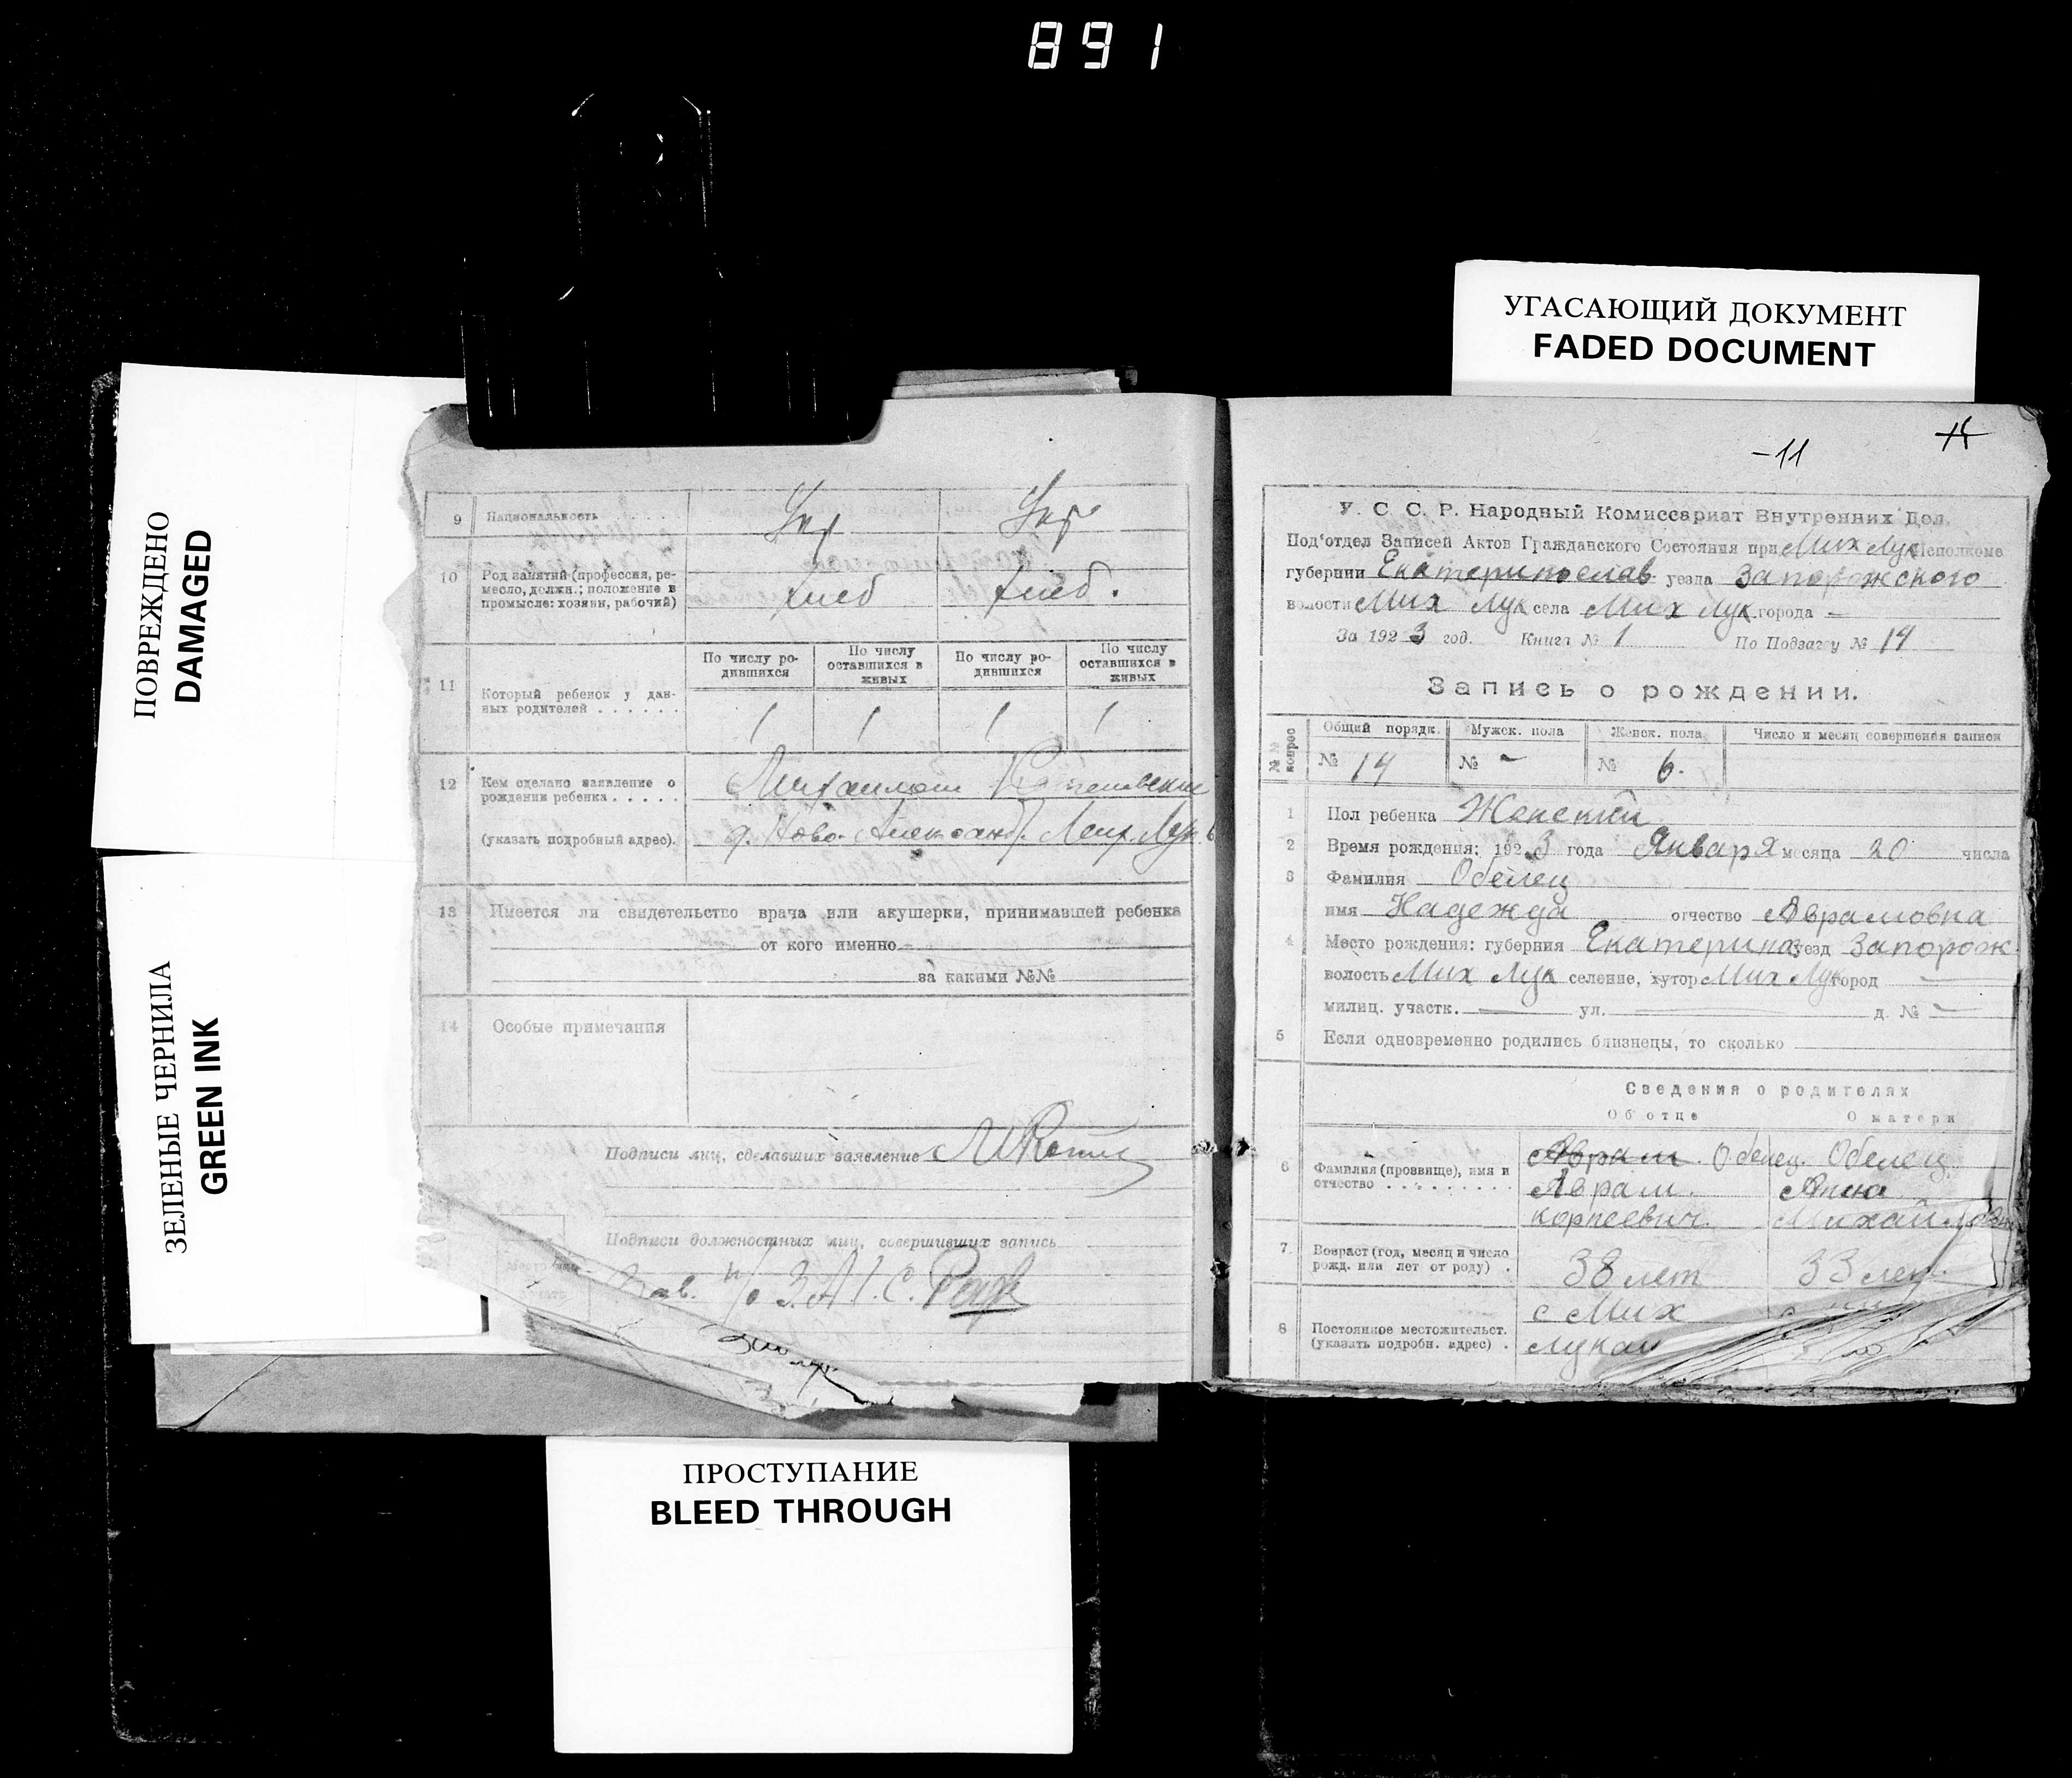 891
УГАСАЮЩИЙ ДОКУМЕНТ
FADED DOCUMENT
ПОВРЕЖДЕНО
DAMAGED
ЗЕЛЕНЫЕ ЧЕРНИЛА
GREEN INK
9 Национальность Укр Укр
10 Род занятий (профессия, ре-
месло, должн.; положение в
промысле: хозяин, рабочий) хлеб хлеб.
По числу ро- По числу По числу ро- По числу
дившихся оставшихся в дившихся оставшихся в
живых живых
11 Который ребенок у дан-
ных родителей 1 1 1 1
12 Кем сделано заявление о
рождении ребенка Михаилом
(указать подробный адрес). Ново-
13 Имеется ли свидетельство врача или акушерки, принимавшей ребенка
от кого именно
за какими №№
14 Особые примечания
Подписи лиц, сделавших заявление
Подписи должностных лиц, совершивших запись
Зав. п/о З.А.Г.С.
-11
У. С. С. Р. Народный Комиссариат Внутренних Дел.
Под'отдел Записей Актов Гражданского Состояния при Мих Лук Исполкоме
губернии Екатеринослав уезда Запорожского
волости Мих Лук села Мих Лук города -
За 1923 год. Книга № 1 По Подзагсу № 14
Запись о рождении.
№№ вопрос Общий порядк. Мужск. пола Женск. пола Число и месяц совершения записи
№ 14 № - № 6.
1 Пол ребенка Женский
2 Время рождения: 1923 года Января месяца 20 числа
3 Фамилия Обелец
имя Надежда отчество Аврамовна
4 Место рождения: губерния Екатеринос уезд Запорож
волость Мих Лук селение, хутор Мих Лук город —
милиц. участк. — ул. — д. № -
5 Если одновременно родились близнецы, то сколько
Сведения о родителях
Об отце О матери
6 Фамилия (прозвище), имя и
отчество
Аврам. Обелец. Обелец
Аврам. Анна
Корнеевич. Михайловна
7 Возраст (год, месяц и число
рожд. или лет от роду) . 38 лет 33 лет.
8 Постоянное местожительст.
(указать подробн. адрес) . с Мих
Лукаш
ПРОСТУПАНИЕ
BLEED THROUGH